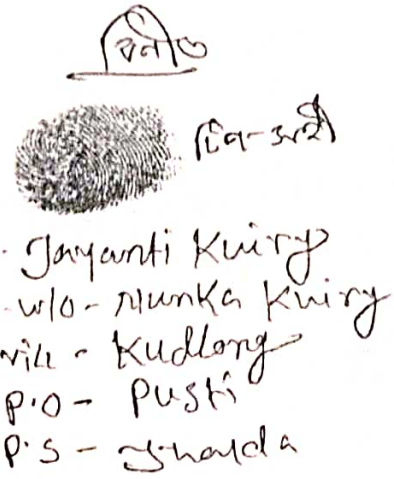 বিনীত
টিপ-সহী
Jayanti Kuiry
w/o - Munka Kuiry
vill - Kudlong
P.O - Pusti
P.S - Jhalda